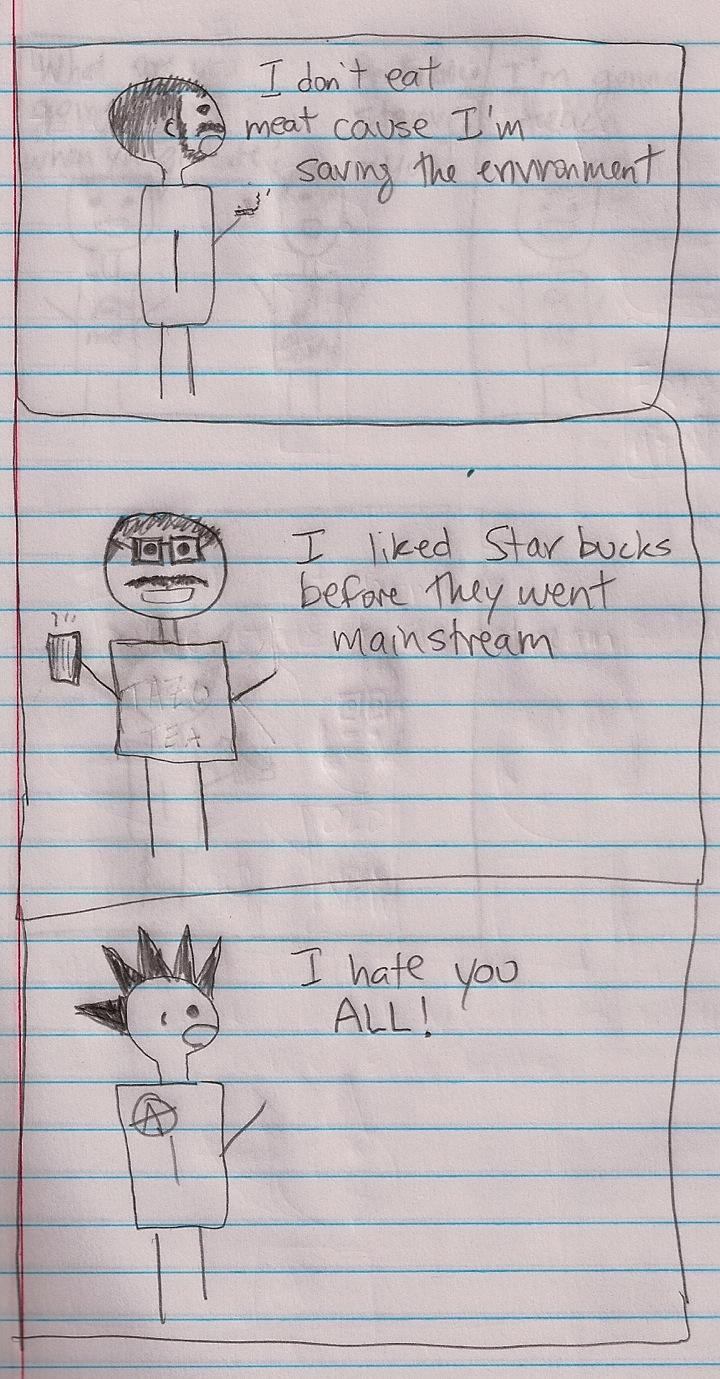 I don't eat
meat cause I'm
saving the environment
I liked Starbucks
before they went
mainstream
TAZO
TEA
I hate you
ALL!
A